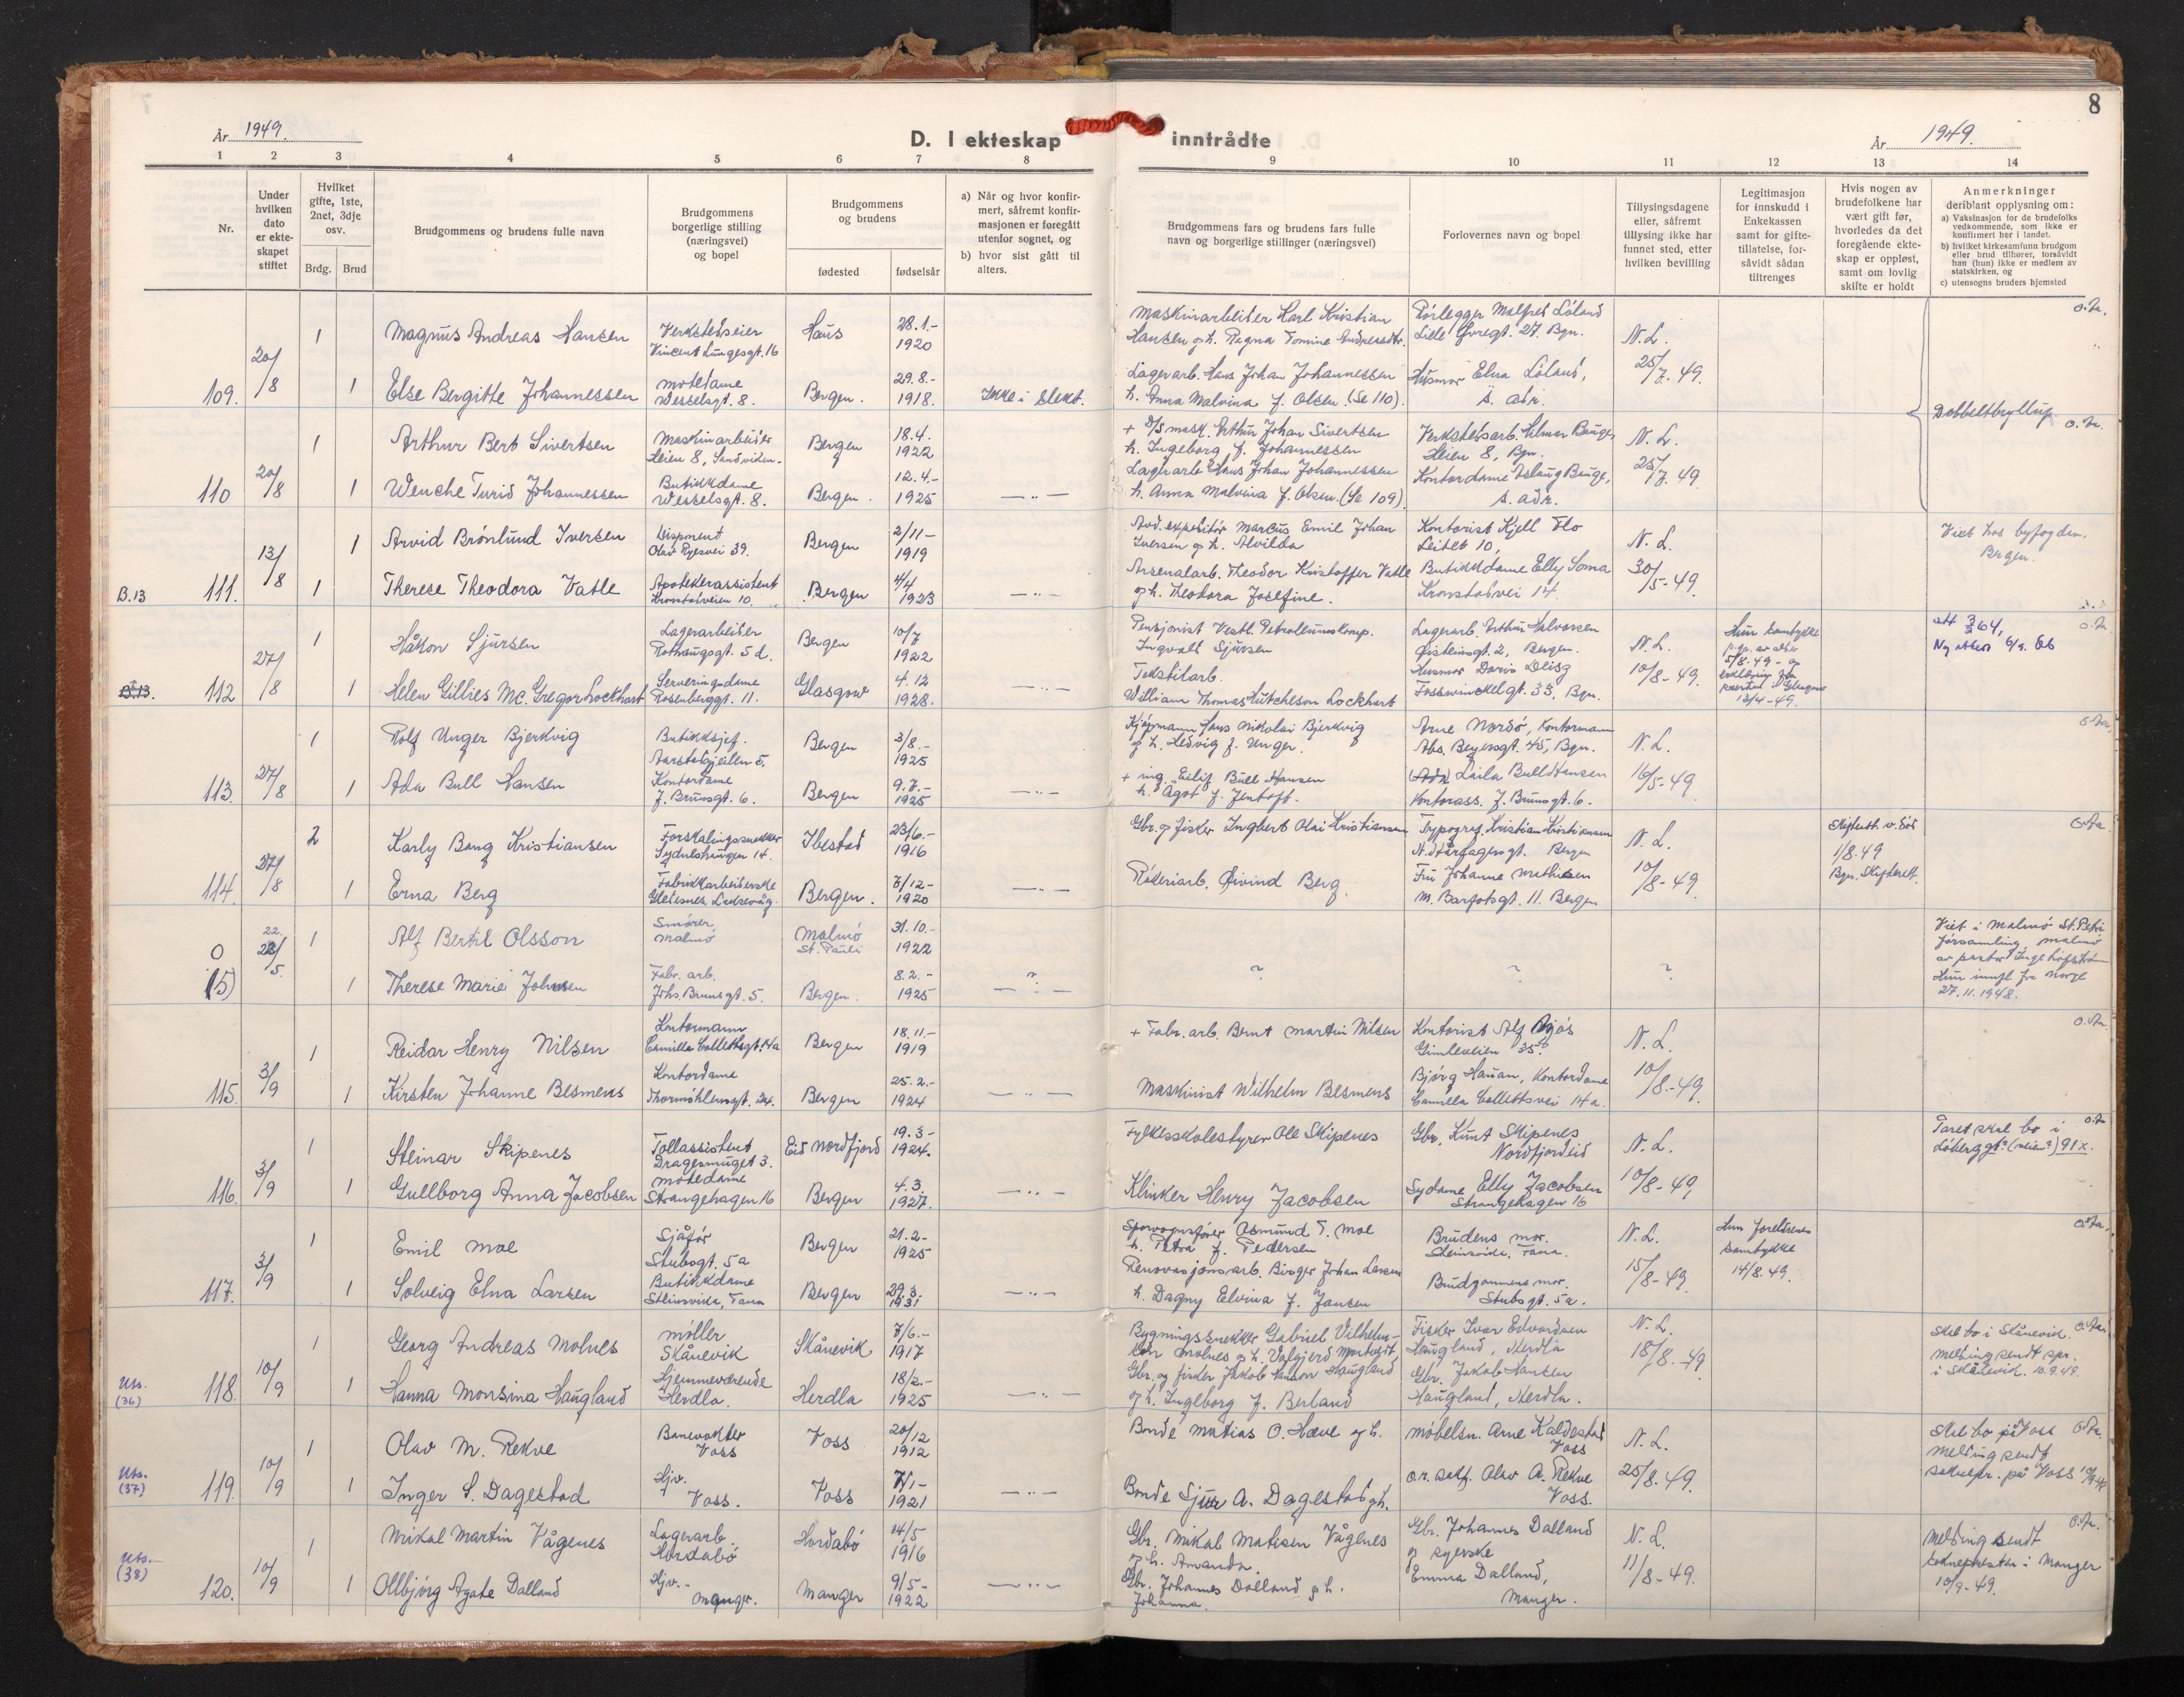 8
År 1949.
D. I ekteskap inntrådte
År 1949.
1 2 3 4 5 6 7 8 9 10 11 12 13 14
Nr.
Under hvilken dato er ekteskapet stiftet
Hvilket gifte, 1ste, 2net, 3dje osv.
Brdg. Brud
Brudgommens og brudens fulle navn
Brudgommens borgerlige stilling (næringsvei) og bopel
Brudgommens og brudens
fødested fødselsår
a) Når og hvor konfirmert, såfremt konfirmasjonen er foregått utenfor sognet, og
b) hvor sist gått til alters.
Brudgommens fars og brudens fars fulle navn og borgerlige stillinger (næringsvei)
Forlovernes navn og bopel
Tillysingsdagene eller, såfremt tillysing ikke har funnet sted, etter hvilken bevilling
Legitimasjon for innskudd i Enkekassen samt for giftetillatelse, forsåvidt sådan tiltrenges
Hvis nogen av brudefolkene har vært gift før, hvorledes da det foregående ekteskap er oppløst, samt om lovlig skifte er holdt
Anmerkninger deriblant opplysning om:
a) Vaksinasjon for de brudefolks vedkommende, som ikke er konfirmert her i landet.
b) hvilket kirkesamfunn brudgom eller brud tilhører, forsåvidt han (hun) ikke er medlem av statskirken, og
c) utensogns bruders hjemsted
109. 20/8 1 Magnus Andreas Hansen Verkstedseier Vincent Lungesgt. 16 Haus 28.1.- 1920 Maskinarbeider Karl Kristian Hansen og h. Ragna Tomine Rørlegger Malfred Løland Lille Øvregt. 27. Bgn. N.L.
1 Else Bergitte Johannessen Motedame Wesselsgt. 8. Bergen. 29.8.- 1918. Ikke i slekt. Lagerarb. Hans Johan Johannessen h. Anna Malvina f. Olsen. (Se 110). Husmor Elna Løland, s. adr. 25/7. 49. Dobbeltbryllup.
110 20/8 1 Arthur Bert Sivertsen Maskinarbeider Heien 8, Sandviken. Bergen 18.4. 1922 + D/S mask. Arthur Johan Sivertsen h. Ingeborg f. Johannessen Verkstedsarb. Hilmar Bauge Heien 8, Bgn. N.L.
1 Wenche Turid Johannessen Butikkdame Wesselsgt. 8. Bergen. 12.4.- 1925 —"— Lagerarb Hans Johan Johannessen h. Anna Malvina f. Olsen. (Se 109) Kontordame Aslaug Bauge, s. adr. 25/7. 49
B.13 111. 13/8 1 Arvid Brønlund Iversen Disponent Olav Ryesvei 39. Bergen 2/11- 1919 Avd. expeditør Marcus Emil Johan Iversen og h. Alvilda Kontorist Kjell Flo Leitet 10, N.L. Viet hos byfogden, Bergen.
1 Therese Theodora Vatle Apotekerassistent Kronstadveien 10. Bergen 4/4 1923 —"— Arsenalarb. Theodor Kristoffer Vatle og h. Theodora Josefine. Butikkdame Elly Soma Kronstadvei 14. 30/5-49.
B.13. 112 27/8 1 Håkon Sjursen Lagerarbeider Rothaugsgt. 5 d. Bergen 10/7 1922 Pensjonist Vestl. Petroleumskomp. Ingvald Sjursen Lagerarb. Arthur Halvorsen Øisteinsgt. 2, Bergen. N.L. Hun samtykke
1 Helen Gillies Mc. Gregor Lockhart Serveringsdame Rosenberggt. 11. Glasgow 4.12 1928. Tekstilarb. William Thomas Hutcheson Lockhart Husmor Doris Deisg Fosswinckelgt. 33, Bgn. 10/8-49. 13/4-49.
113. 27/8 1 Rolf Unger Bjerkvig Butikksjef. Bergen 3/8.- 1925 Kjøpmann Hans Nikolai Bjerkvig og h. Hedvig f. Unger. Arne Nordø, Kontormann Abs. Beyersgt. 45, Bgn. N.L.
1 Ada Bull Hansen Kontordame J. Brunsgt. 6. Bergen 9.7.- 1925 —"— + ing. Eilif Bull Hansen h. Ågot f. Jentoft. Laila Bull Hansen Kontorass. J. Brunsgt. 6. 16/5-49
114. 27/8 2 Karly Bang Kristiansen Forskalingssnekker Ibestad 23/6.- 1916 Gbr. og fisker Ingbert Olai Kristiansen Typograf. Kristian Kristiansen N. Hårfagersgt. Bergen N.L. 1/8.49 Bgn. Skifterett.
1 Erna Berg Fabrikkarbeiderske Gletesnes, Laksevåg. Bergen. 7/12- 1920 —"— Rederiarb. Øivind Berg. Fru Johanne Mathisen M. Barfotsgt. 11. Bergen 10/8-49.
0 (15) 22/5. 1 Alf Bertil Olsson Smörer, Malmö Malmö St. Pauli 31.10.- 1922 Viet i Malmö St. Petri församling, Malmö av pastor Inge Löfström Hun innfl. fra Norge 27.11.1948.
1 Therese Marie Johnsen Fabr. arb. Johs. Brunsgt. 5. Bergen. 8.2.- 1925 ? ? ? ?
115. 3/9 1 Reidar Henry Nilsen Kontormann Camilla Collettsgt. 14a Bergen 18.11.- 1919 + Fabr. arb. Bernt Martin Nilsen Kontorist Alf Gimleveien 35 N.L.
1 Kirsten Johanne Besmens Kontordame Thormøhlensgt. 24. Bergen 25.2.- 1924 —"— Maskinist Wilhelm Besmens Bjørg Hauan, Kontordame Camilla Collettsvei 14a. 10/8.-49.
116. 3/9 1 Steinar Skipenes Tollassistent Dragesmuget 3. Eid Nordfjord 19.3- 1924. Fylkesskolestyrer Ole Skipenes Gbr. Knut Skipenes Nordfjordeid N.L. Paret skal bo i Løberggt? (veien?) 91x.
1 Gullborg Anna Jacobsen Motedame Strangehagen 16 Bergen 4.3. 1927. —"— Klinker Henry Jacobsen Sydame Elly Jacobsen Strangehagen 16 10/8-49,
117. 3/9 1 Emil Moe Sjåfør Stubsgt. 5a Bergen 21.2- 1925 Sporvognsfører Osmund T. Moe h. Petra f. Pedersen Brudens mor. Steinsvika, Fana. N.L. Hun foreldrenes samtykke 14/8.49.
1 Solveig Elna Larsen Butikkdame Steinsvika, Fana Bergen 29.3. 1931 —"— Renovasjonsarb. Birger Johan Larsen h. Dagny Elvina f. Jansen Brudgommens mor. Stubsgt. 5a. 15/8-49.
Uts. (36) 118. 10/9 1 Georg Andreas Molnes Møller Skånevik Skånevik 7/6.- 1917 Bygningssnekker Gabriel Vilhelmsen Molnes og h. Valgjerd Fisker Ivar Edvardsen Haugland, Herdla N.L. Skal bo i Skånevik. Melding sendt spr. i Skånevik. 10.9.49.
1 Hanna Monsina Haugland Hjemmeværende Herdla. Herdla 18/2.- 1925 —"— Gbr. og fisker Jakob Hanson Haugland og h. Ingeborg f. Berland Gbr. Jakob Hansen Haugland, Herdla. 18/8.-49
Uts. (37) 119. 10/9 1 Olav M. Rekve Banevokter Voss Voss 20/12 1912 Bonde Matias O. Hæve og h. Møbelsn. Arne Kaldestad Voss N.L. Skal bo på Voss Melding sendt soknepr. på Voss
1 Inger S. Dagestad Hjv. Voss. Voss 7/1- 1921 —"— Bonde Sjur A. Dagestad og h. o.r. sakf. Olav A. Rekve Voss. 25/8.49.
Uts. (38) 120. 10/9 1 Mikal Martin Vågenes Lagerarb. Hordabø Hordabø 14/5 1916 Gbr. Mikal Matisen Vågenes og h. Amanda. Gbr. Johannes Dalland og syerske N.L. Melding sendt soknepresten i Manger 10/9-49.
1 Ollbjørg Agate Dalland Hjv.- Manger. Manger 9/5- 1922 —"— Gbr. Johannes Dalland og h. Johanna. Emma Dalland, Manger. 11/8-49.